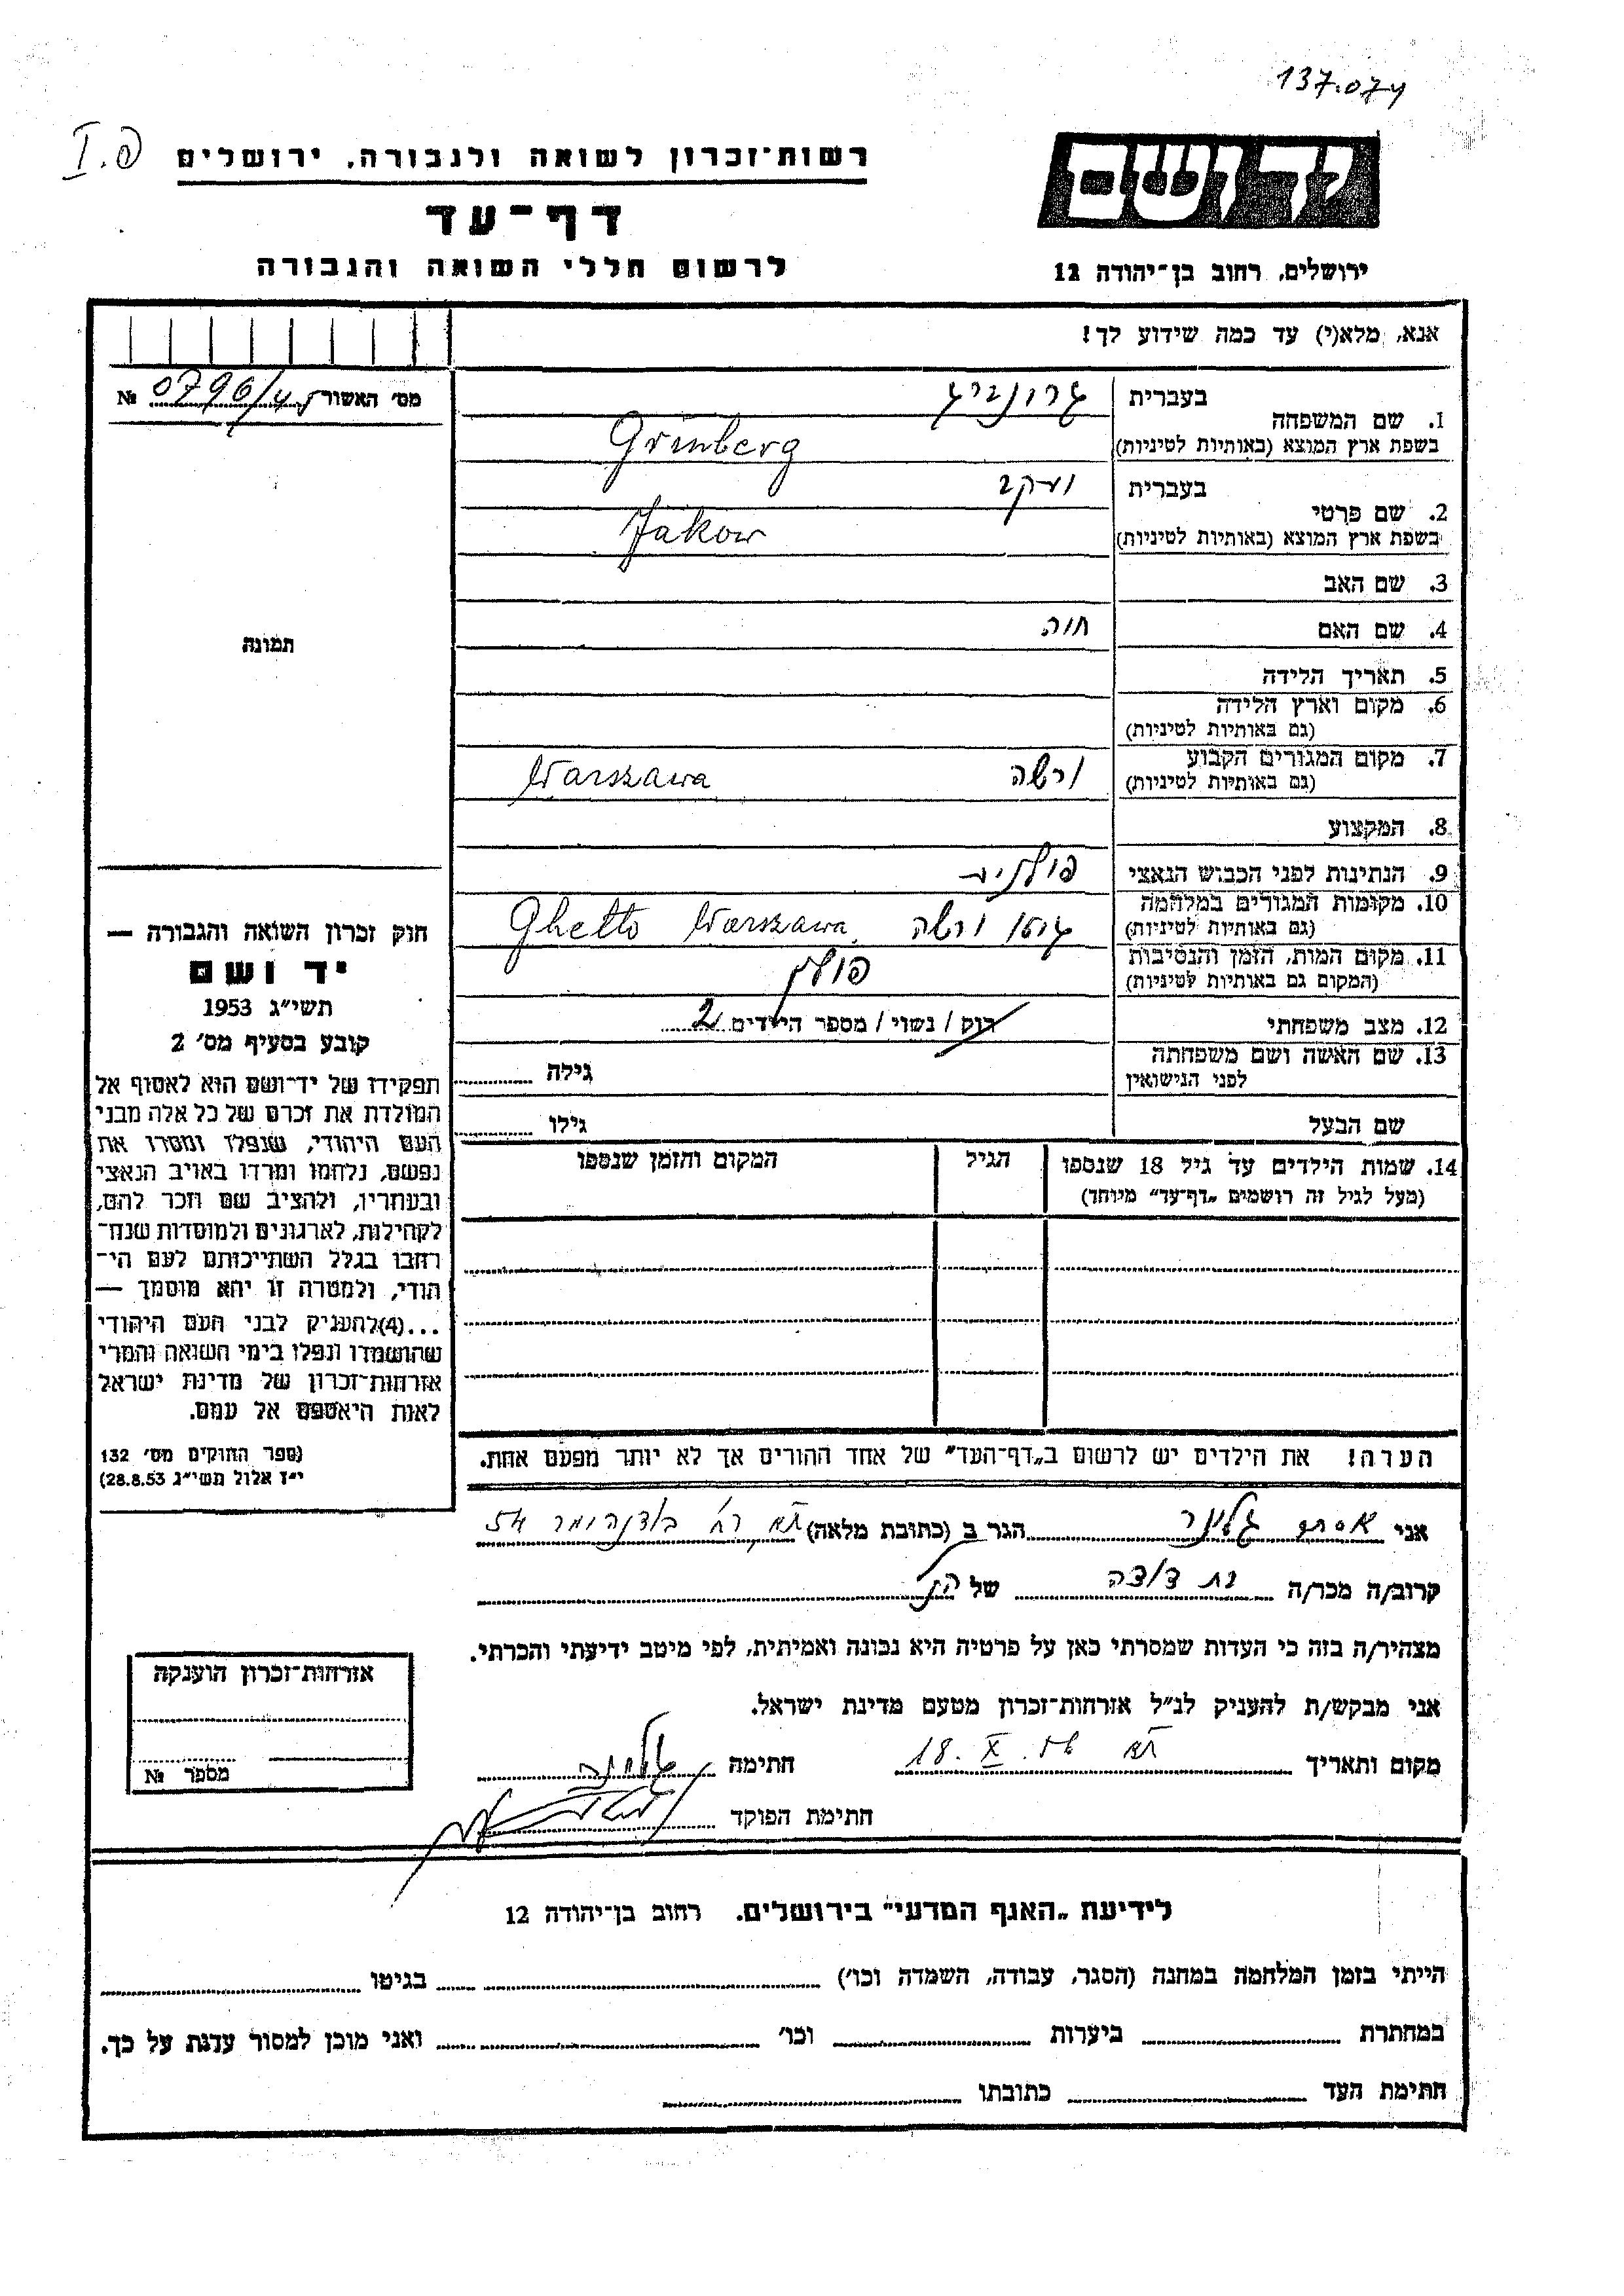 137.074
I.פ
רשות־זכרון לשואה ולגבורה, ירושלים
יד ושם
דף־עד
לרשום חללי השואה והגבורה
ירושלים, רחוב בן־יהודה 12
אנא, מלא(י) עד כמה שידוע לך!
מס׳ האשור №
1. שם המשפחה
בעברית גרונברג
בשפת ארץ המוצא (באותיות לטיניות) Grünberg
2. שם פרטי
בעברית יעקב
בשפת ארץ המוצא (באותיות לטיניות) Jakow
3. שם האב
4. שם האם חוה
תמונה
5. תאריך הלידה
6. מקום וארץ הלידה
(גם באותיות לטיניות)
7. מקום המגורים הקבוע ורשה Warszawa
(גם באותיות לטיניות)
8. המקצוע
9. הנתינות לפני הכבוש הנאצי פולנית
10. מקומות המגורים במלחמה גטו ורשה Ghetto Warszawa
(גם באותיות לטיניות)
11. מקום המות, הזמן והנסיבות פולין
(המקום גם באותיות לטיניות)
12. מצב משפחתי רוק / נשוי / מספר הילדים 2
13. שם האשה ושם משפחתה
לפני הנישואין גילה
שם הבעל גילו
14. שמות הילדים עד גיל 18 שנספו הגיל המקום והזמן שנספו
(מעל לגיל זה רושמים „דף־עד״ מיוחד)
הערה! את הילדים יש לרשום ב„דף־העד״ של אחד ההורים אך לא יותר מפעם אחת.
חוק זכרון השואה והגבורה —
יד ושם
תשי״ג 1953
קובע בסעיף מס׳ 2
תפקידו של יד־ושם הוא לאסוף אל
המולדת את זכרם של כל אלה מבני
העם היהודי, שנפלו ומסרו את
נפשם, נלחמו ומרדו באויב הנאצי
ובעוזריו, ולהציב שם וזכר להם,
לקהילות, לארגונים ולמוסדות שנח־
רבו בגלל השתייכותם לעם הי־
הודי, ולמטרה זו יהא מוסמך —
...(4)להעניק לבני העם היהודי
שהושמדו ונפלו בימי השואה והמרי
אזרחות־זכרון של מדינת ישראל
לאות היאספם אל עמם.
(ספר החוקים מס׳ 132
י״ז אלול תשי״ג 28.8.53)
אני אסתר הגר ב (כתובת מלאה) רח׳ 54
קרוב/ה מכר/ה בת דודה של הנ״ל
מצהיר/ה בזה כי העדות שמסרתי כאן על פרטיה היא נכונה ואמיתית, לפי מיטב ידיעתי והכרתי.
אני מבקש/ת להעניק לנ״ל אזרחות־זכרון מטעם מדינת ישראל.
מקום ותאריך ת״א 18. X. 56 חתימה
חתימת הפוקד
אזרחות־זכרון הוענקה
מספר №
לידיעת „האגף המדעי״ בירושלים. רחוב בן־יהודה 12
הייתי בזמן המלחמה במחנה (הסגר, עבודה, השמדה וכו׳) בגיטו
במחתרת ביערות וכו׳ ואני מוכן למסור עדות על כך.
חתימת העד כתובתו